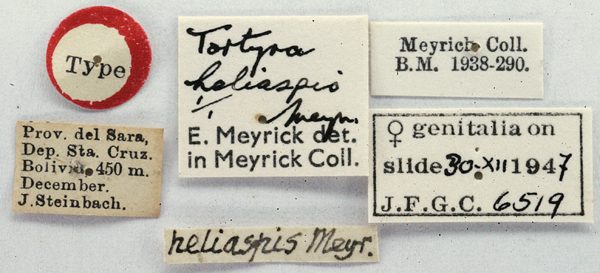 Type
Tortyra
heliaspis
1/1 Meyr.
E. Meyrick det.
in Meyrick Coll.
Meyrick Coll.
B.M. 1938-290.
Prov. del Sara,
Dep. Sta. Cruz.
Bolivia, 450 m.
December.
J. Steinbach.
♀ genitalia on
slide 30-XII 1947
J.F.G.C. 6519
heliaspis Meyr.